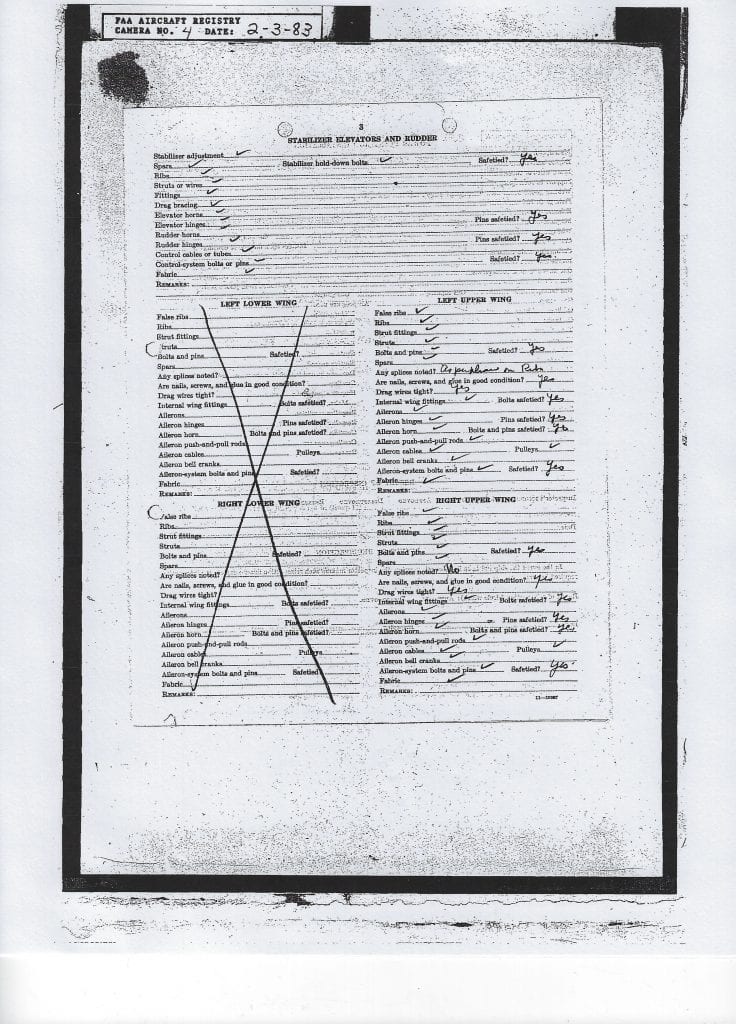 FAA AIRCRAFT REGISTRY
CAMERA NO. 4 DATE: 2-3-83
3
STABILIZER ELEVATORS AND RUDDER
Stabilizer adjustment ✓
Spars ✓ Stabilizer hold-down bolts ✓ Safetied? Yes
Ribs ✓
Struts or wires ✓
Fittings ✓
Drag bracing ✓
Elevator horns ✓
Elevator hinges ✓ Pins safetied? Yes
Rudder horns ✓
Rudder hinges ✓ Pins safetied? Yes
Control cables or tubes ✓
Control-system bolts or pins ✓ Safetied? Yes
Fabric ✓
REMARKS:
LEFT LOWER WING
False ribs
Ribs
Strut fittings
Struts
Bolts and pins Safetied?
Spars
Any splices noted?
Are nails, screws, and glue in good condition?
Drag wires tight?
Internal wing fittings Bolts safetied?
Ailerons
Aileron hinges Pins safetied?
Aileron horn Bolts and pins safetied?
Aileron push-and-pull rods
Aileron cables Pulleys
Aileron bell cranks
Aileron-system bolts and pins Safetied?
Fabric
REMARKS:
LEFT UPPER WING
False ribs ✓
Ribs ✓
Strut fittings ✓
Struts ✓
Bolts and pins ✓ Safetied? Yes
Spars
Any splices noted? on Ribs
Are nails, screws, and glue in good condition? Yes
Drag wires tight? Yes
Internal wing fittings ✓ Bolts safetied? Yes
Ailerons ✓
Aileron hinges ✓ Pins safetied? Yes
Aileron horn ✓ Bolts and pins safetied? Yes
Aileron push-and-pull rods ✓
Aileron cables ✓ Pulleys ✓
Aileron bell cranks ✓
Aileron-system bolts and pins ✓ Safetied? Yes
Fabric ✓
REMARKS:
RIGHT LOWER WING
False ribs
Ribs
Strut fittings
Struts
Bolts and pins Safetied?
Spars
Any splices noted?
Are nails, screws, and glue in good condition?
Drag wires tight?
Internal wing fittings Bolts safetied?
Ailerons
Aileron hinges Pins safetied?
Aileron horn Bolts and pins safetied?
Aileron push-and-pull rods
Aileron cables Pulleys
Aileron bell cranks
Aileron-system bolts and pins Safetied?
Fabric
REMARKS:
RIGHT UPPER WING
False ribs ✓
Ribs ✓
Strut fittings ✓
Struts ✓
Bolts and pins ✓ Safetied? Yes
Spars
Any splices noted? No
Are nails, screws, and glue in good condition? Yes
Drag wires tight? Yes
Internal wing fittings ✓ Bolts safetied? Yes
Ailerons ✓
Aileron hinges ✓ Pins safetied? Yes
Aileron horn ✓ Bolts and pins safetied? Yes
Aileron push-and-pull rods ✓
Aileron cables ✓ Pulleys ✓
Aileron bell cranks ✓
Aileron-system bolts and pins ✓ Safetied? Yes
Fabric ✓
REMARKS: